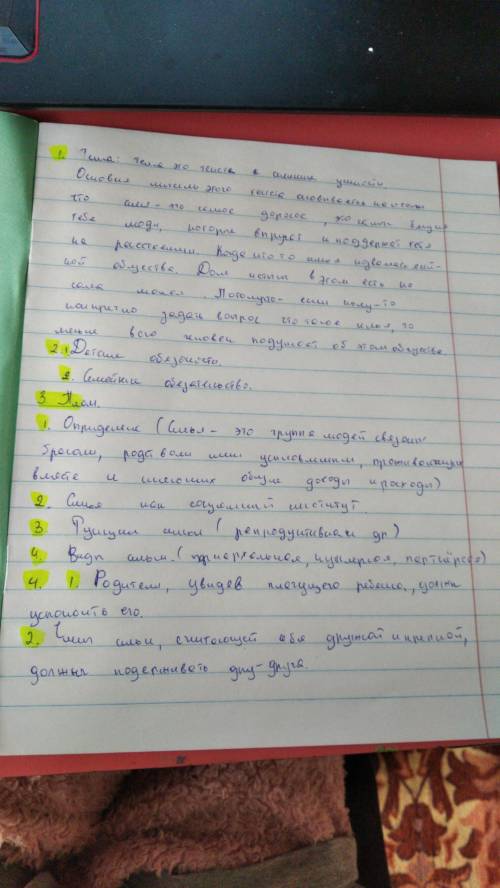 1. Тема: тема это текста о
Основная мысль этого текста
что семья - это самое дорогое, это
тебе люди, которые и поддержат тебя
на расстоянии. Когда что то
ной обществе. Для в этом есть
сама . Потому что если кому-то
конкретно задать вопрос что такое семья, то
менее всего человек подумает об этом обществе.
2. 1. Детские
2. Семейные обязательства.
3 План.
1. Определение (Семья - это группа людей
браком, родством или усыновлением, проживающих
вместе и имеющих общие доходы и расходы)
2. Семья как социальный институт.
3 Функции семьи (репродуктивная и др)
4. Виды семьи. (патриархальная, нуклеарная, партнёрская)
4. 1. Родители, увидев плачущего ребёнка, должны
успокоить его.
2. Члены семьи, считающей себя дружной и крепкой,
должны подерживать друг-друга.